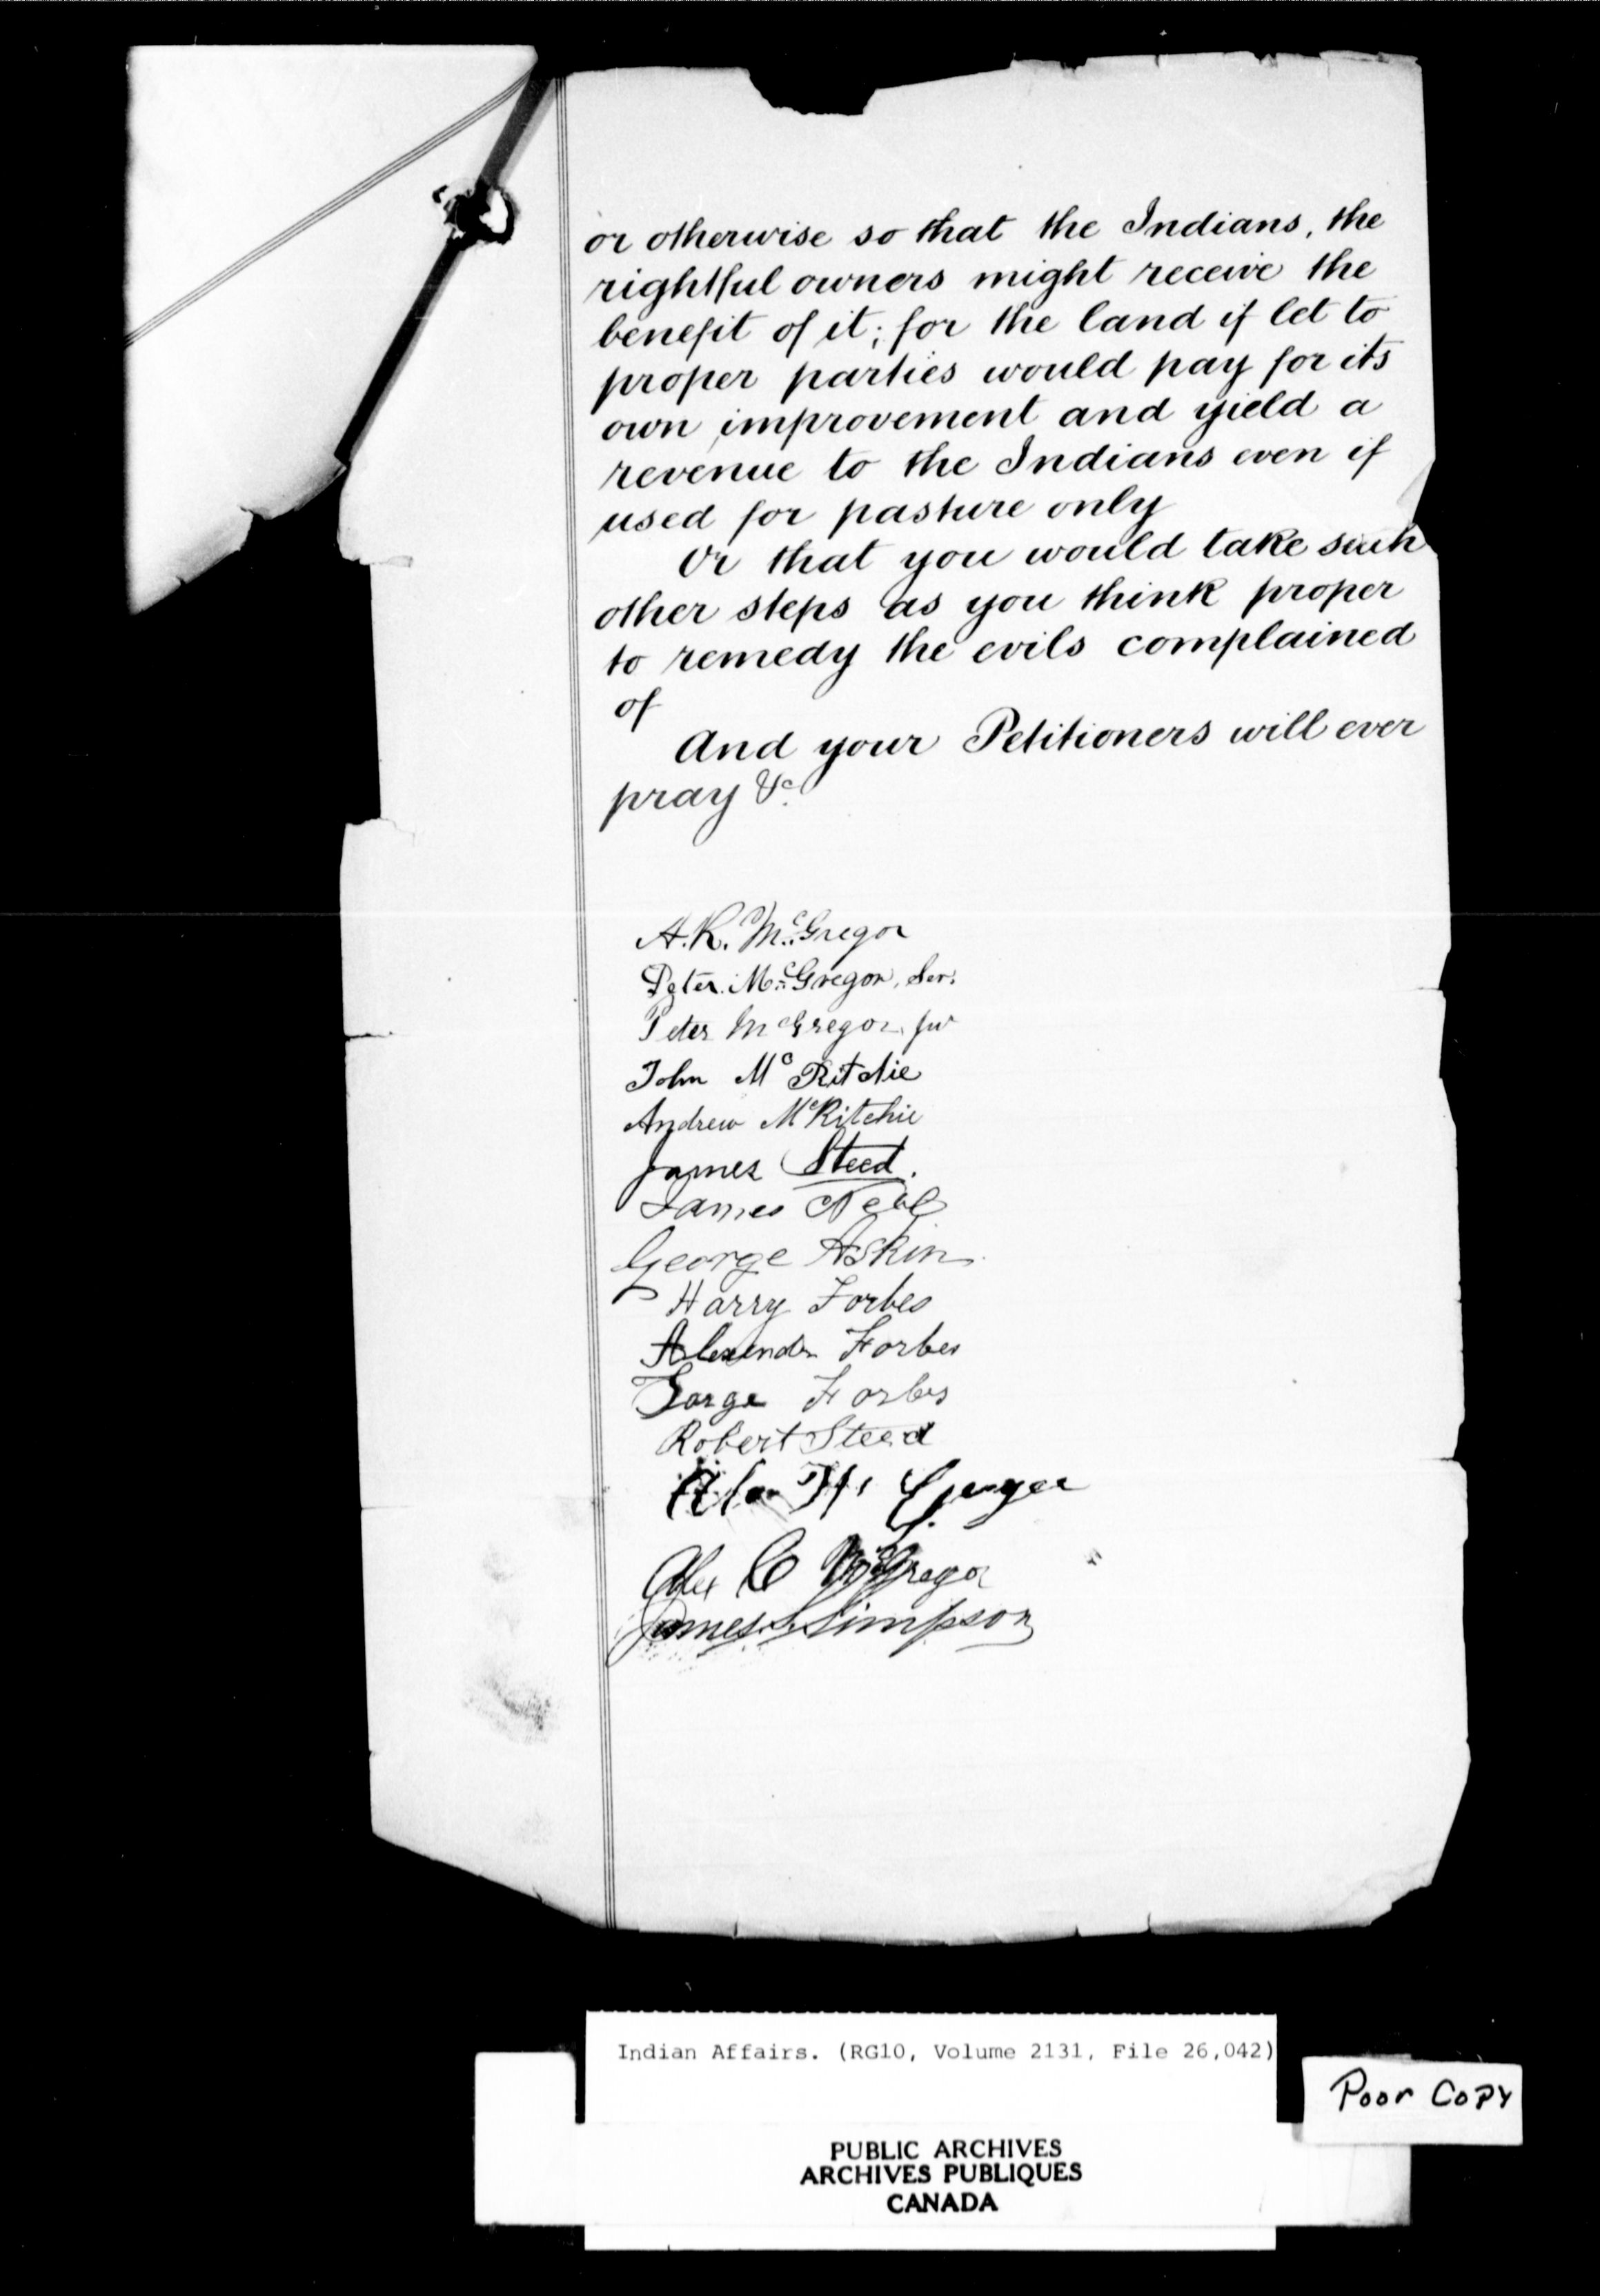 or otherwise so that the Indians, the
rightful owners might receive the
benefit of it; for the land if let to
proper parties would pay for its
own improvement and yield a
revenue to the Indians even if
used for pasture only
Or that you would take such
other steps as you think proper
to remedy the evils complained
of
And your Petitioners will ever
pray &c.
A. R. McGregor
Peter McGregor, Ser.
Peter McGregor, Jur
John McRitchie
Andrew McRitchie
James Steed.
James Neil
George Askin
Harry Forbes
Alexander Forbes
Gorge Forbes
Robert Steed
Alex C McGregor
James Simpson
Indian Affairs. (RG10, Volume 2131, File 26,042)
Poor Copy
PUBLIC ARCHIVES
ARCHIVES PUBLIQUES
CANADA